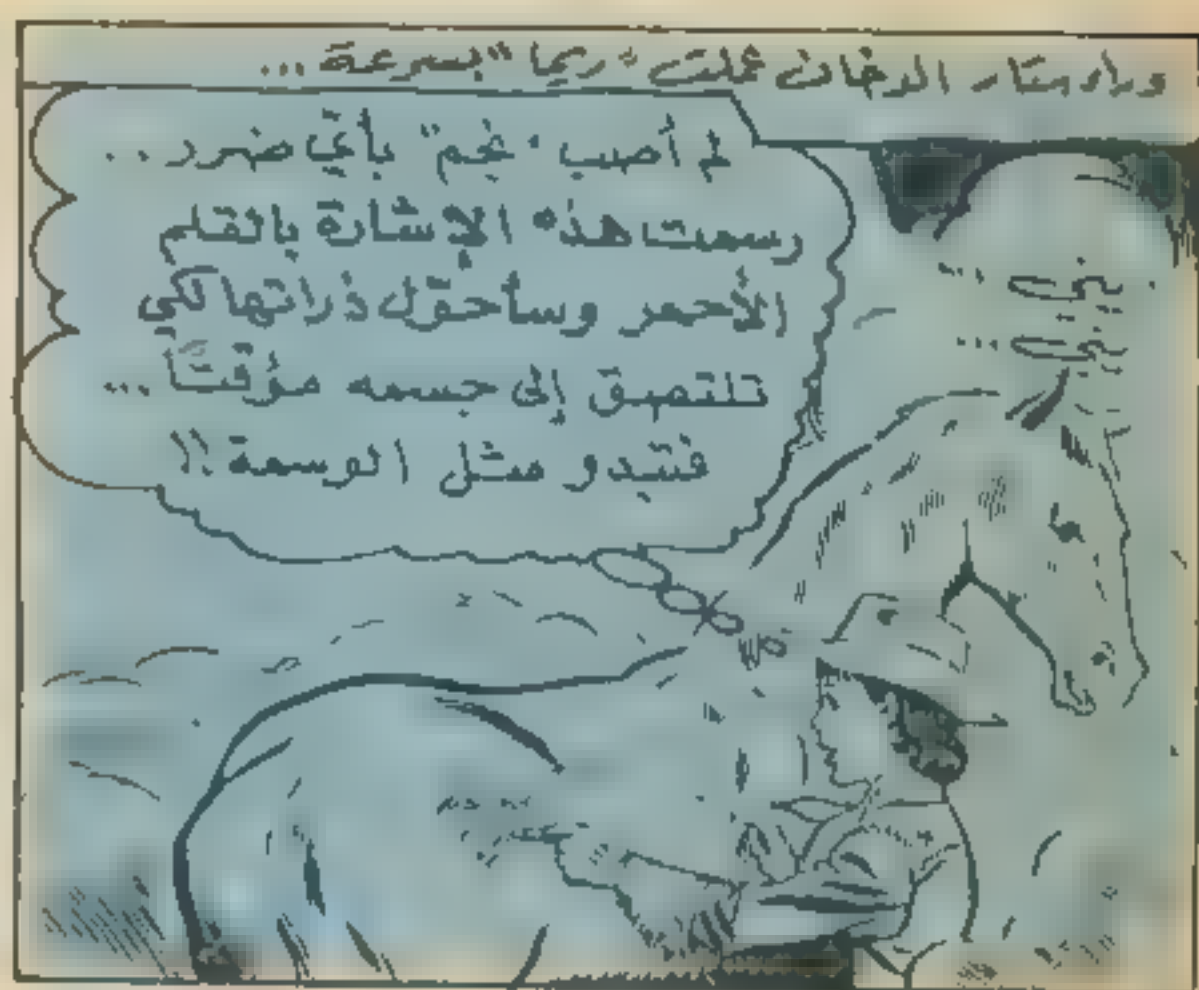 وراء ستار الدخان عملت "ريما" بسرعة ...
لم أصب "نجم" بأيّ ضرر ..
رسمت هذه الإشارة بالقلم
الأحمر وسأحوّل ذراتها لكي
تلتصق إلى جسمه مؤقتاً ...
فتبدو مثل الوسمة !!